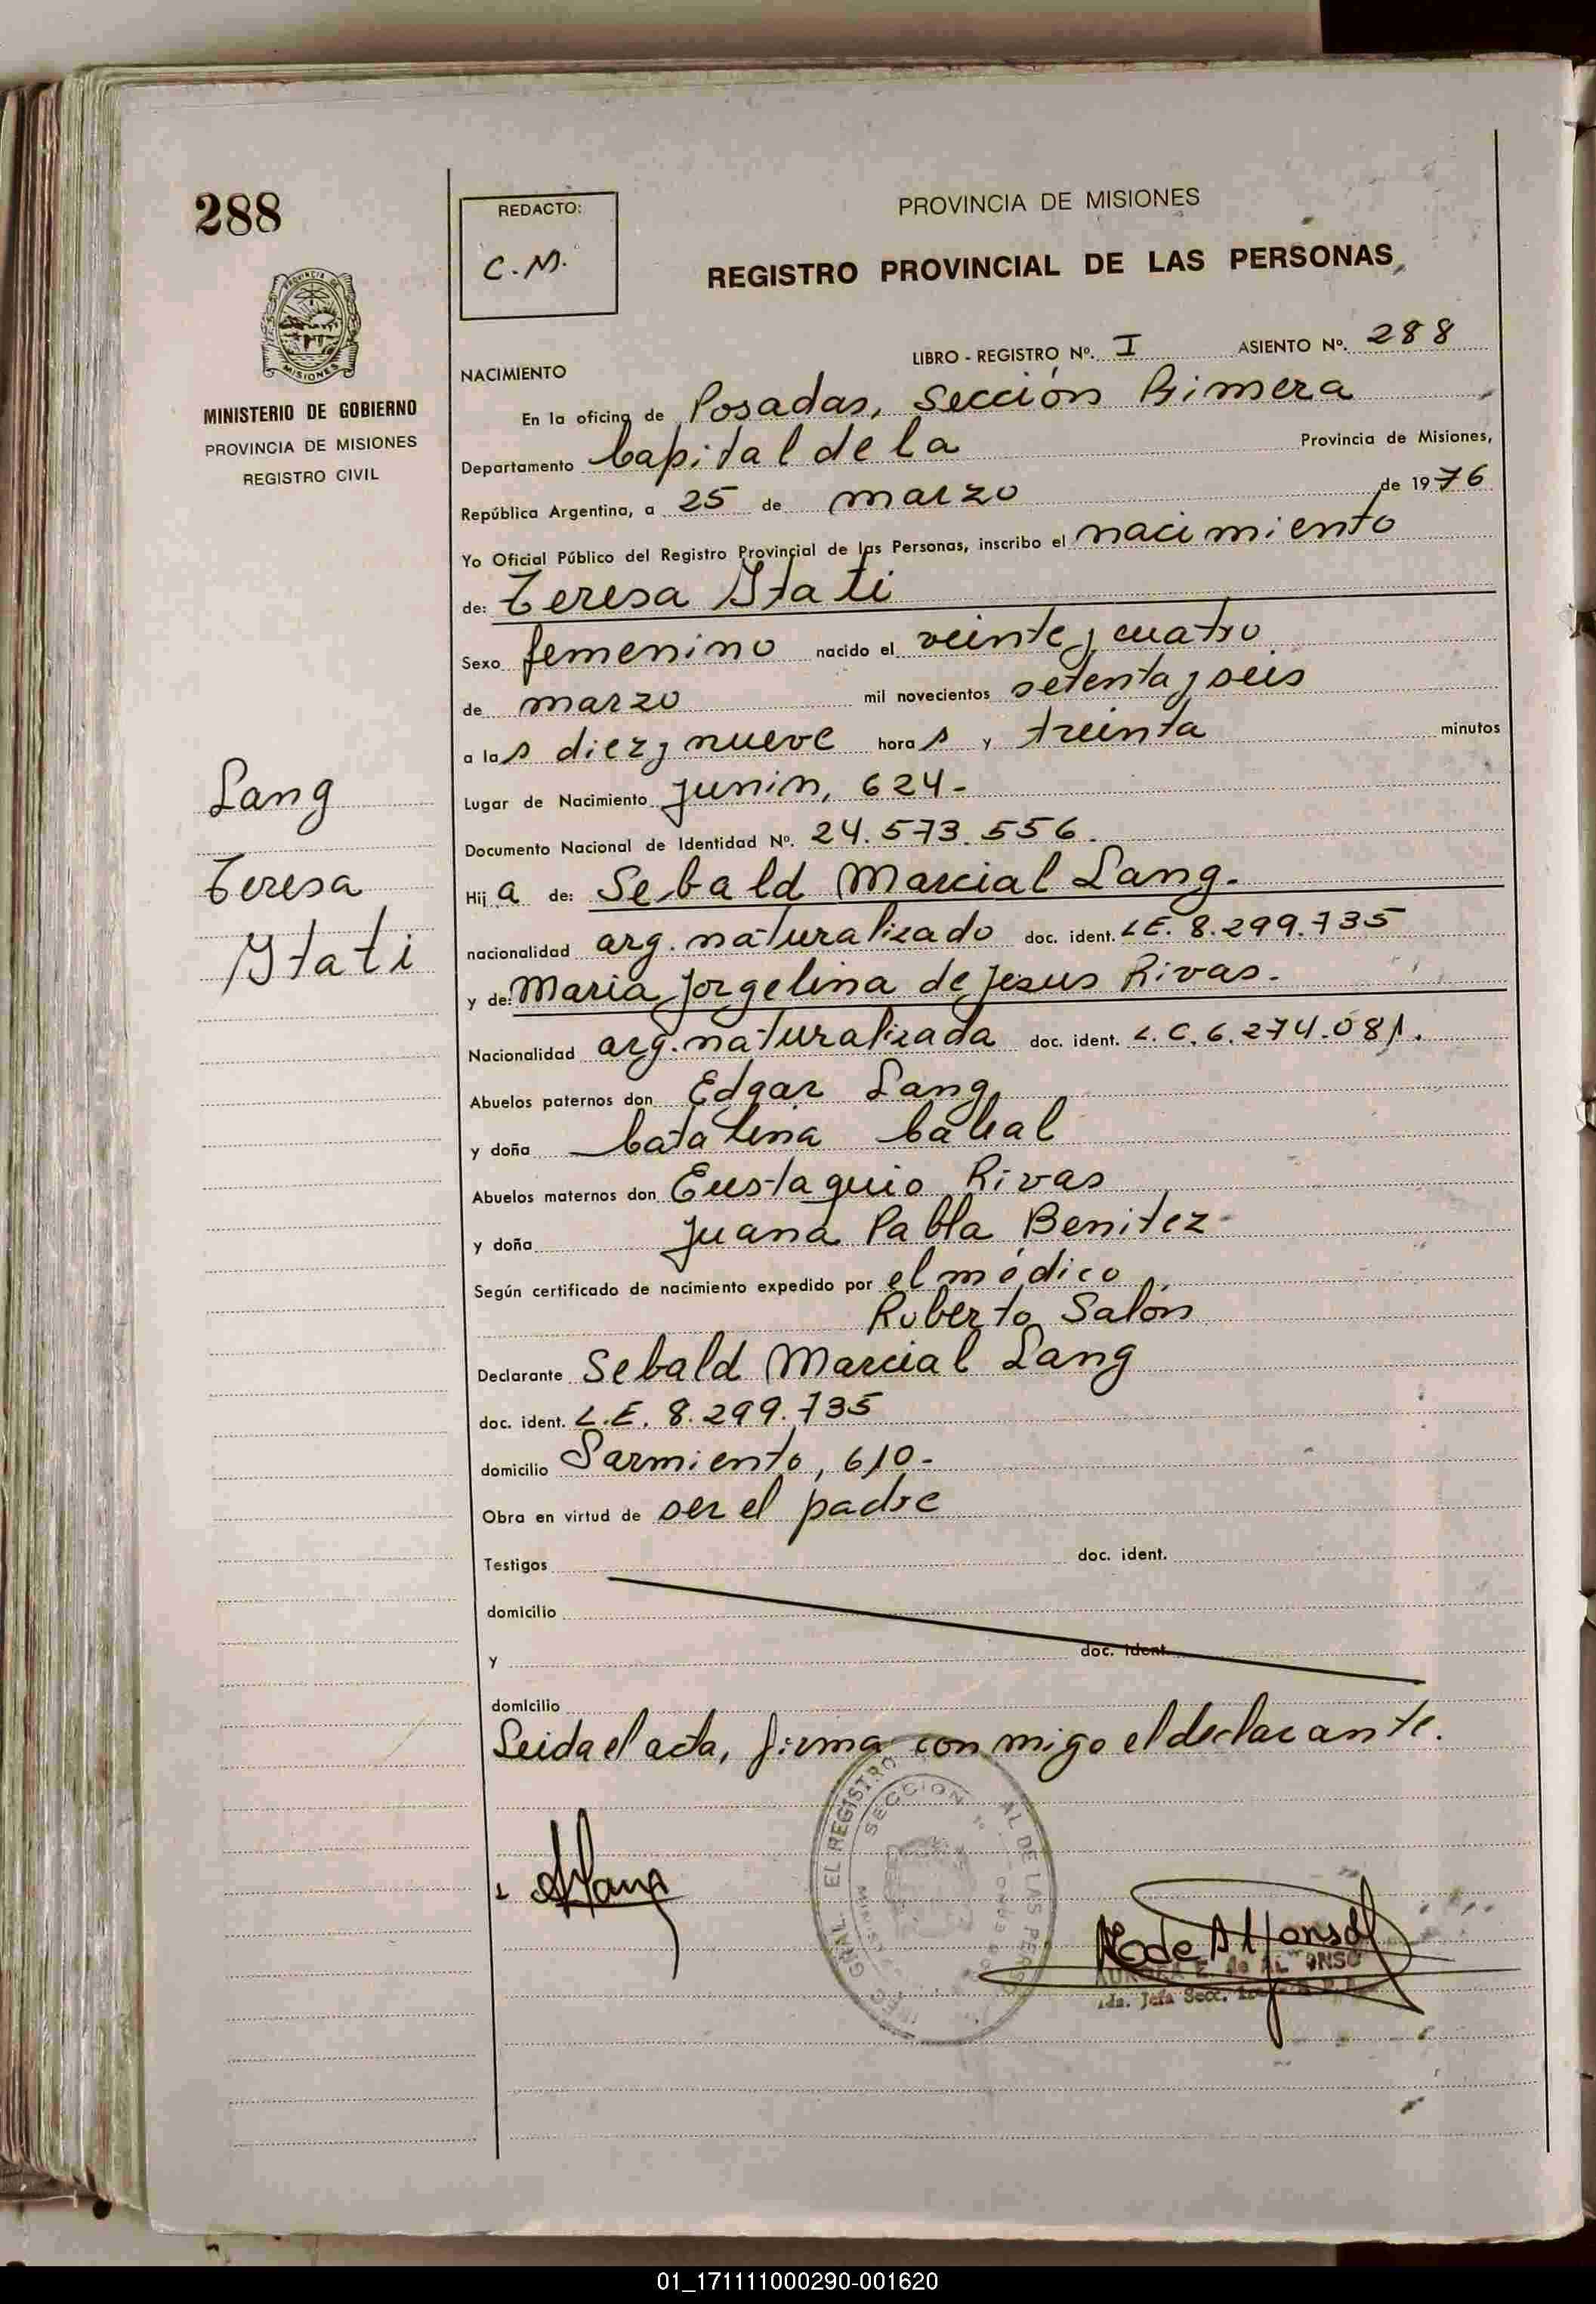 288
PROVINCIA DE
MISIONES
MINISTERIO DE GOBIERNO
PROVINCIA DE MISIONES
REGISTRO CIVIL
Lang
Teresa
Itati
REDACTO:
C.M.
PROVINCIA DE MISIONES
REGISTRO PROVINCIAL DE LAS PERSONAS
LIBRO - REGISTRO Nº. I ASIENTO Nº. 288
NACIMIENTO
En la oficina de Posadas, Sección Primera
Departamento Capital de la Provincia de Misiones,
República Argentina, a 25 de marzo de 1976
Yo Oficial Público del Registro Provincial de las Personas, inscribo el nacimiento
de: Teresa Itati
Sexo femenino nacido el veinte y cuatro
de marzo mil novecientos setenta y seis
a las diez y nueve horas y treinta minutos
Lugar de Nacimiento Junin, 624-
Documento Nacional de Identidad Nº. 24.573.556.
Hija de: Sebald Marcial Lang.-
nacionalidad arg. naturalizado doc. ident. L.E. 8.299.735
y de: Maria Jorgelina de Jesus Rivas.-
Nacionalidad arg. naturalizada doc. ident. L.C. 6.274.081.
Abuelos paternos don Edgar Lang
y doña Catalina
Abuelos maternos don Eustaquio Rivas
y doña Juana Pabla Benitez-
Según certificado de nacimiento expedido por el médico
Roberto Salón
Declarante Sebald Marcial Lang
doc. ident. L.E. 8.299.735
domicilio Sarmiento, 610.-
Obra en virtud de ser el padre
Testigos doc. ident.
domicilio
y doc. ident.
domicilio
Leida el acta, firma con migo el declarante.
EL REGISTRO
AL DE LAS PERSO
SECCION 1º
GRAL.
de Alfonso
AURORA E. de ALFONSO
Jefa Secc.
01_171111000290-001620